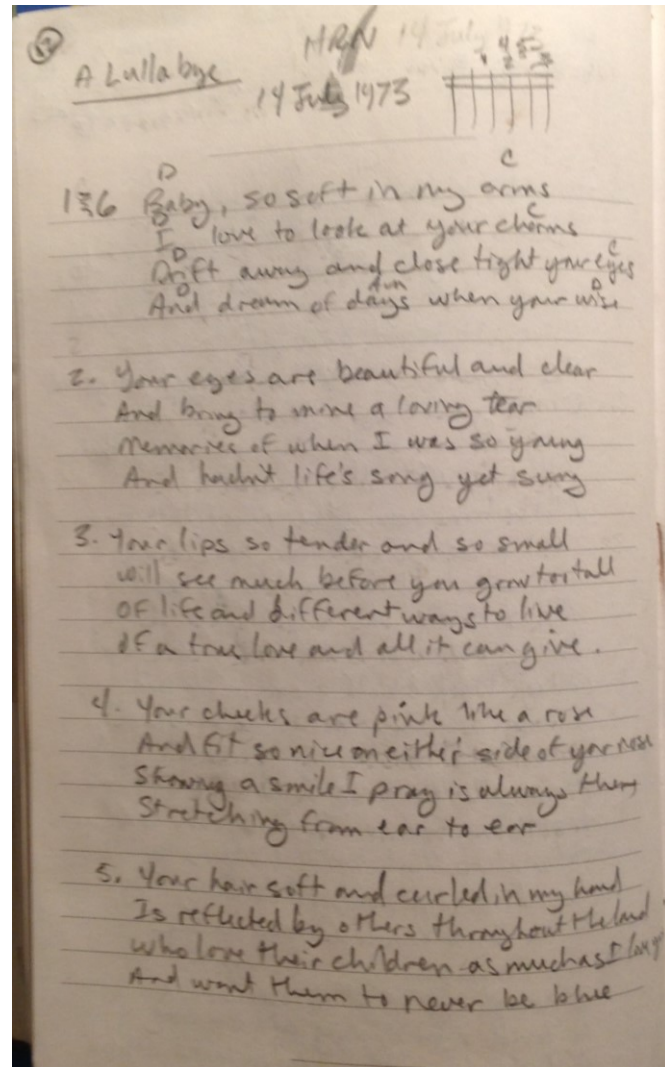 A Lullabye
MRN 14 July
14 July 1973
D C
1 & 6 Baby, so soft in my arms
D C
I love to look at your charms
D C
Drift away and close tight your eyes
D D
And dream of days when your wise
2. Your eyes are beautiful and clear
And bring to mine a loving tear
Memories of when I was so young
And hadn't life's song yet sung
3. Your lips so tender and so small
will see much before you grow too tall
of life and different ways to live
of a true love and all it can give.
4. Your cheeks are pink like a rose
And fit so nice on either side of your nose
Showing a smile I pray is always there
Stretching from ear to ear
5. Your hair soft and curled, in my hand
Is reflected by others throughout the land
who love their children as much as I
And want them to never be blue